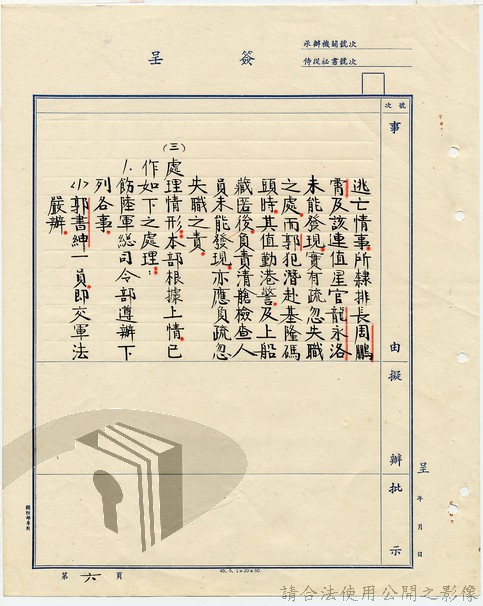 簽呈
承辦機關號次
侍從祕書號次
號次
事
由擬
辦批
示
逃亡情事所隸排長周鵬
霄及該連值星官龍永洛
未能發現實有疏忽失職
之處而郭犯潛赴基隆碼
頭時其值勤港警及上船
藏匿後負責清艙檢查人
員未能發現亦應負疏忽
失職之責
(三)處理情形本部根據上情已
作如下之處理：
1.飭陸軍總司令部遵辦下
列各事
(1)郭書紳一員即交軍法
嚴辦
呈
年
月
日
第六頁
請合法使用公開之影像